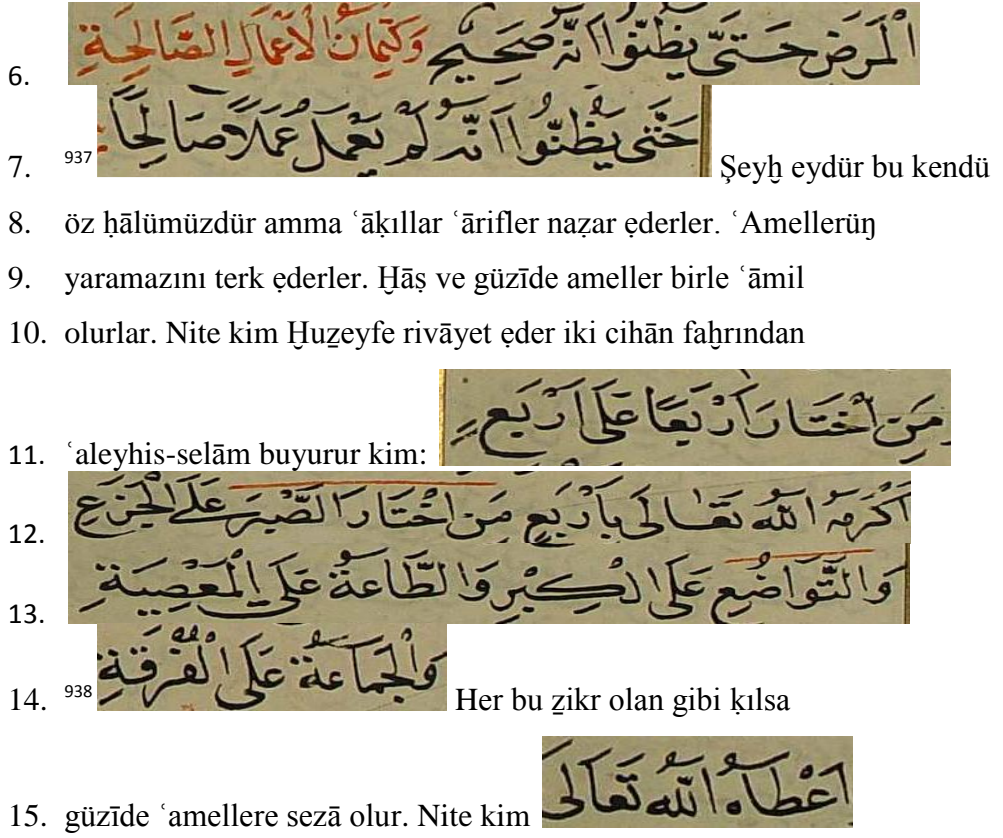 6. الْمَرَضِ حَتَّىَ يَظُنُّوا اَنَّهُ صَحِيحٌ وَكِتْمَانُ الْاَعْمَالِ الصَّالِحَةِ
7. حَتَّى يَظُنُّوا اَنَّهُ لَمْ يَعْمَلْ عَمَلاً صَالِحاً 937 Şeyḫ eydür bu kendü
8. öz ḥālümüzdür amma ʿāḳıllar ʿārifler naẓar ėderler. ʿAmellerüŋ
9. yaramazını terk ėderler. Ḫāṣ ve güzīde ameller birle ʿāmil
10. olurlar. Nite kim Ḫuẕeyfe rivāyet ėder iki cihān faḫrından
11. ʿaleyhis-selām buyurur kim: مَنِ اخْتَارَ اَرْبَعًا عَلَى اَرْبَعٍ
12. اَكْرَمَهُ اللّٰهُ تَعَالَى بِاَرْبَعٍ مَنِ اخْتَارَ الصَّبْرَ عَلَى الْجَزَعِ
13. وَالتَّوَاضُعِ عَلَى الْكِبْرِ وَالطَّاعَةُ عَلَى الْمَعْصِيَةِ
14. وَالْجَمَاعَةُ عَلَى الْفُرْقَةِ 938 Her bu ẕikr olan gibi ḳılsa
15. güzīde ʿamellere sezā olur. Nite kim اَعْطَاهُ اللّٰهُ تَعَالَى